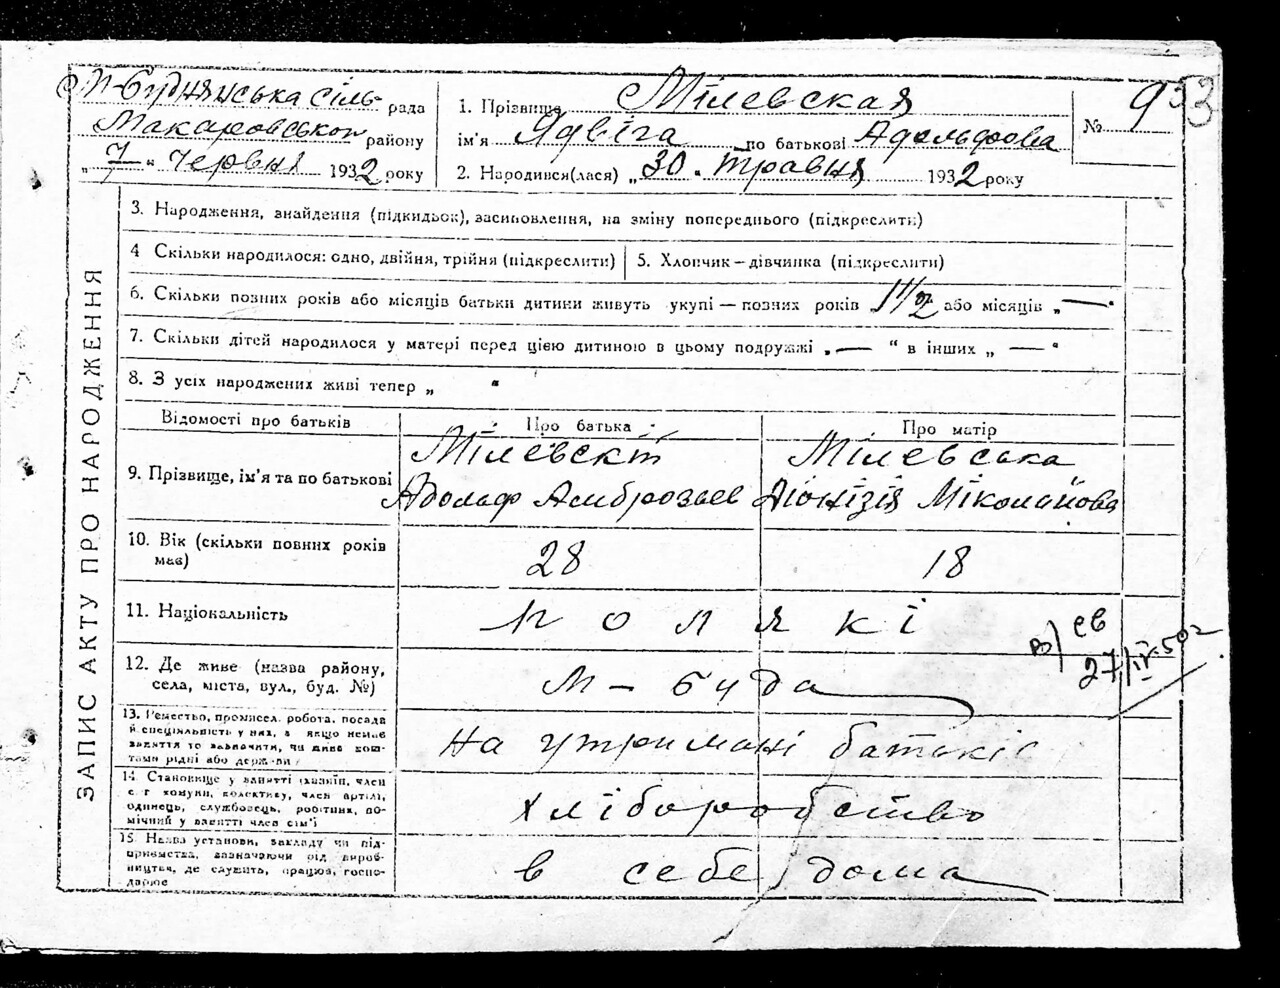 М-Буднянська сіль- рада
Макаровського району
„7“ червня 1932 року
1. Прізвище Мілевская
ім'я Ядвіга по батькові Адольфова
2. Народився(лася) „30“ травня 1932 року
№ 9
53
ЗАПИС АКТУ ПРО НАРОДЖЕННЯ
3. Народження, знайдення (підкидьок), засиновлення, на зміну попереднього (підкреслити)
4 Скільки народилося: одно, двійня, трійня (підкреслити)
5. Хлопчик — дівчинка (підкреслити)
6. Скільки повних років або місяців батьки дитини живуть укупі — повних років 1 1/2 або місяців „ — “
7. Скільки дітей народилося у матері перед цією дитиною в цьому подружжі „ — “ в інших „ — “
8. З усіх народжених живі тепер „ “
Відомості про батьків
Про батька
Про матір
9. Прізвище, ім'я та по батькові
Мілевскі
Адольф Амброзьев
Мілевська
Діонізія Міколайова
10. Вік (скільки повних років
має)
28
18
11. Національність
поляки
27/IV-50
12. Де живе (назва району,
села, міста, вул., буд. №)
М-Буда
13. Ремество, промисел, робота, посада
й спеціяльність у них, а якщо немає
заняття то зазначити, чи живе кош-
тами рідні або держави
На утримані батьків
14. Становище у занятті (хазяїн, член
с г комуни, колективу, член артілі,
одинець, службовець, робітник, по-
мічний у занятті член сім'ї
хліборобство
15. Назва установи, закладу чи під-
приємства, зазначаючи рід вироб-
ництва, де служить, працює, госпо-
дарює
в себе дома